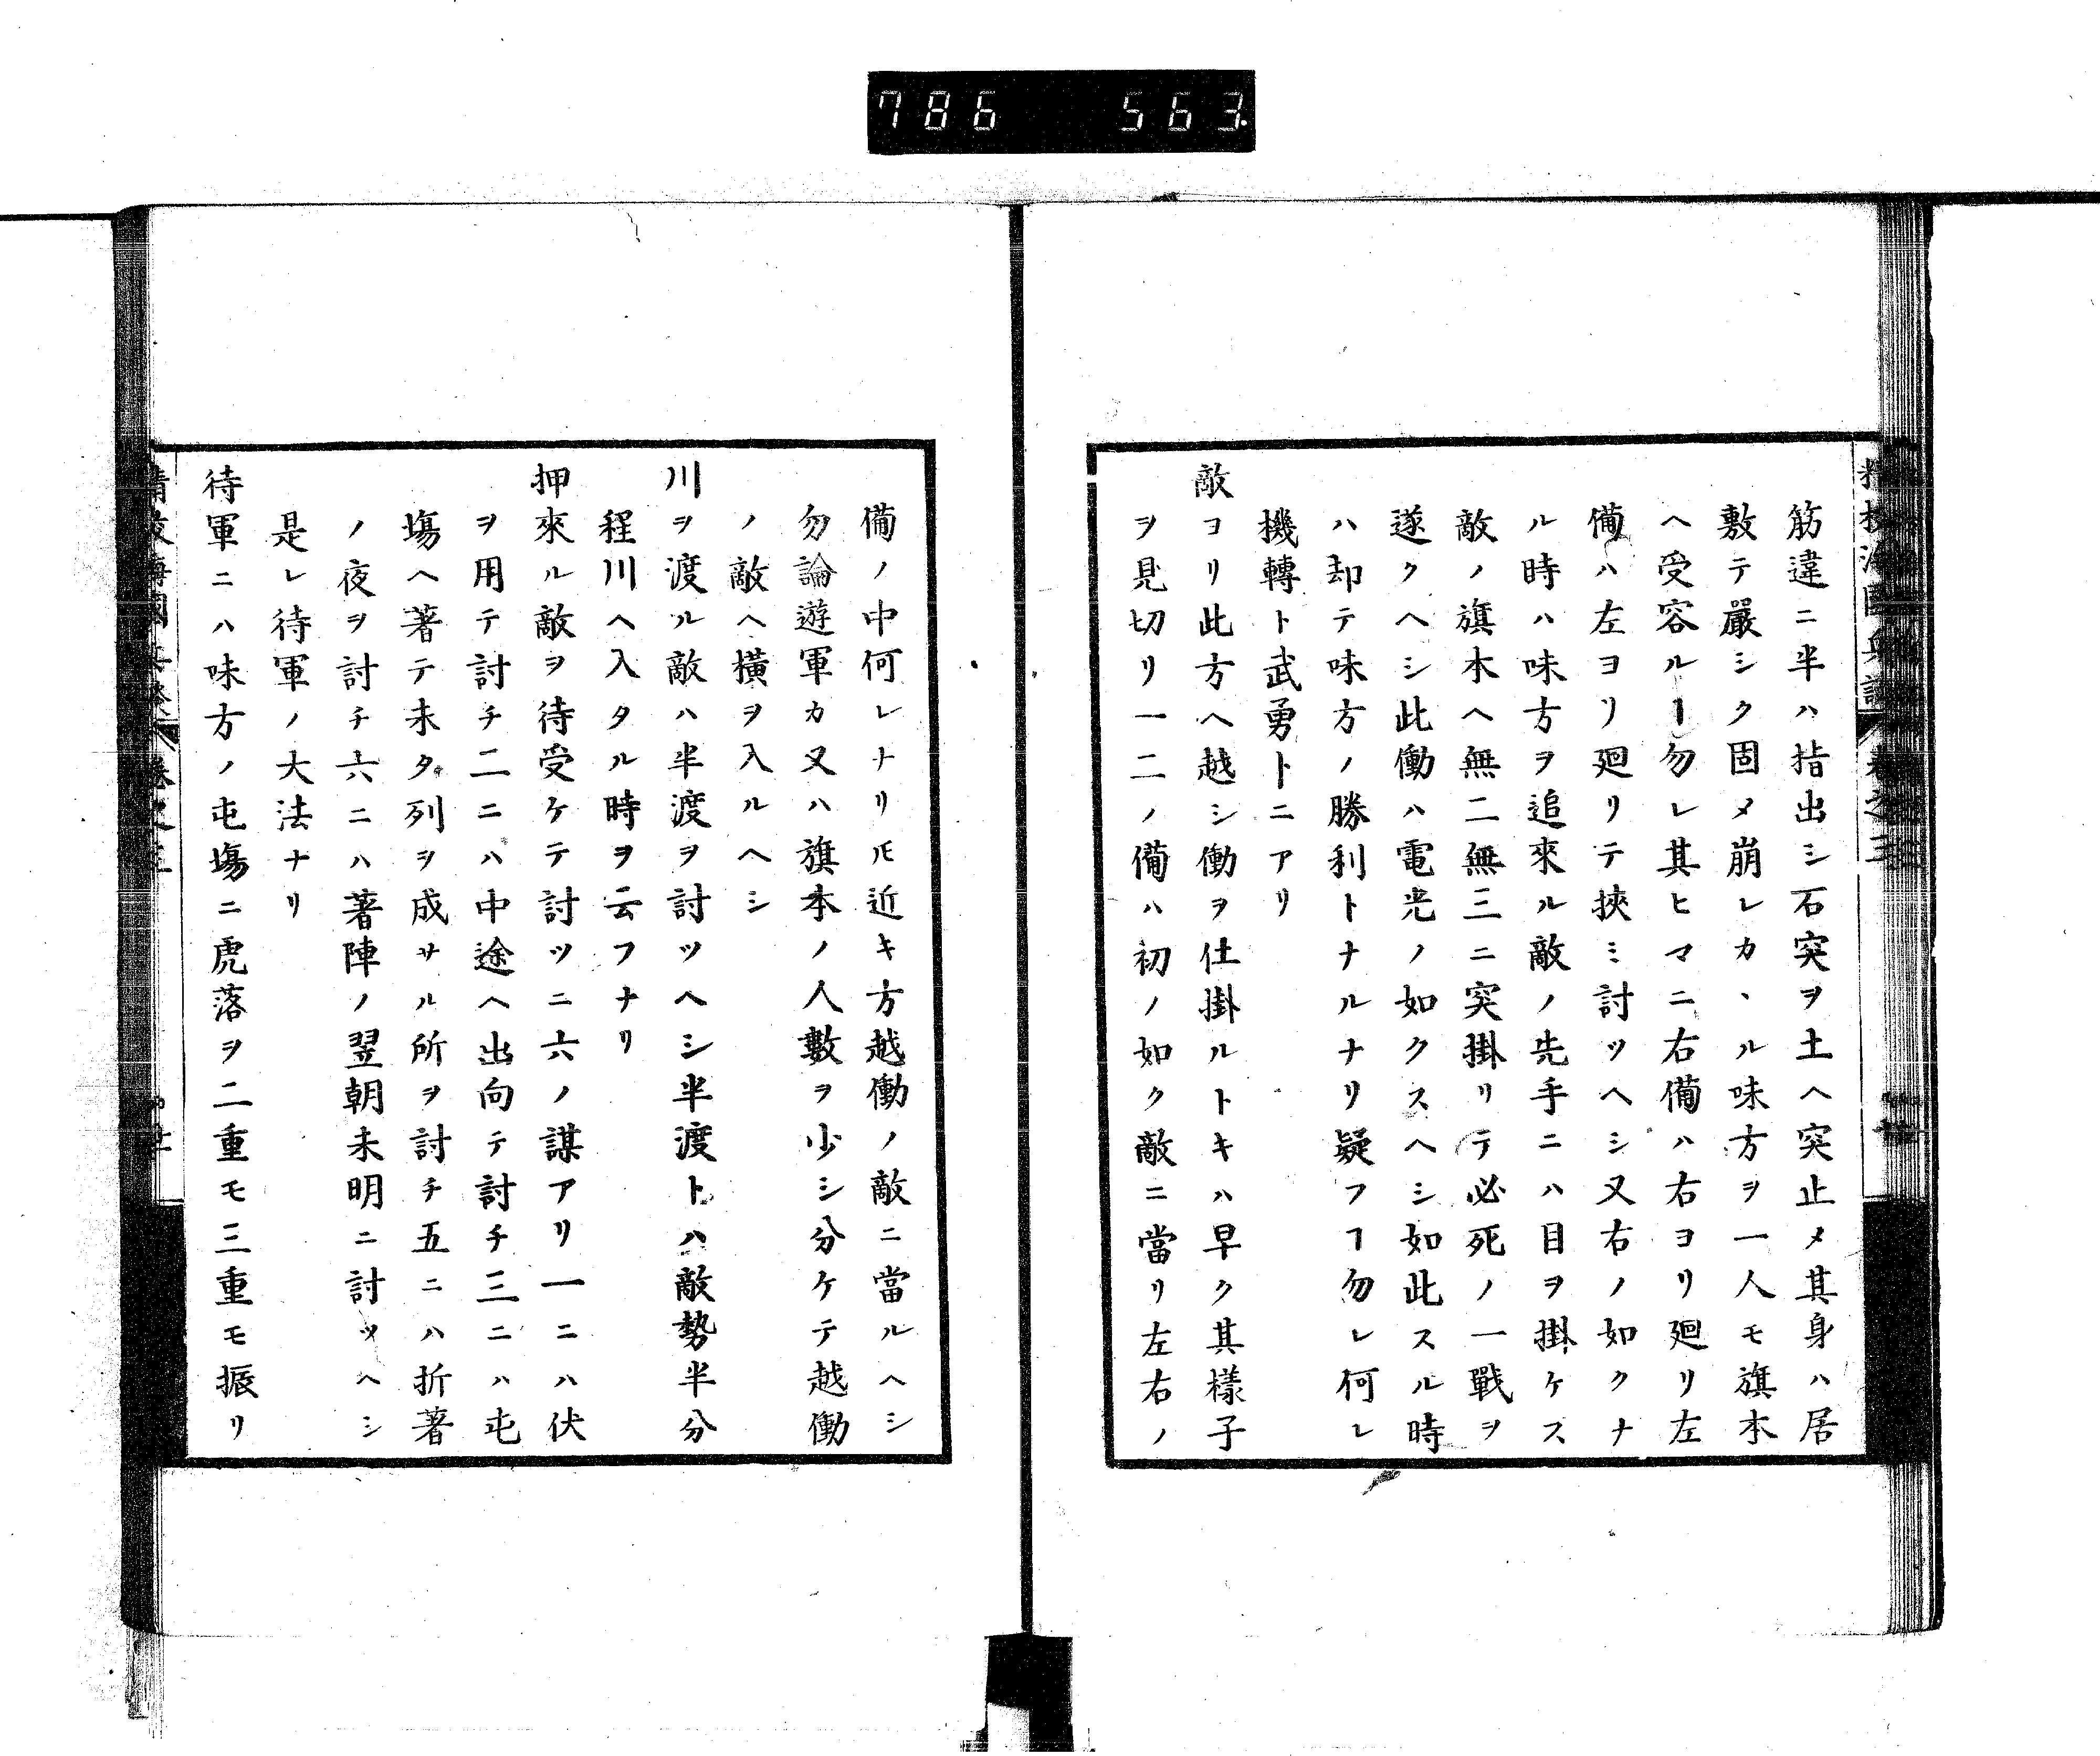 786 563
精校海國兵談 卷之三
筋違ニ半ハ指出シ石突ヲ土ヘ突止メ其身ハ居
敷テ嚴シク固メ崩レカヽル味方ヲ一人モ旗本
ヘ受容ルヿ勿レ其ヒマニ右備ハ右ヨリ廻リ左
備ハ左ヨリ廻リテ挾ミ討ツヘシ又右ノ如クナ
ル時ハ味方ヲ追來ル敵ノ先手ニハ目ヲ掛ケス
敵ノ旗本ヘ無二無三ニ突掛リテ必死ノ一戰ヲ
遂クヘシ此働ハ電光ノ如クスヘシ如此スル時
ハ却テ味方ノ勝利トナルナリ疑フヿ勿レ何レ
機轉ト武勇トニアリ
敵ヨリ此方ヘ越シ働ヲ仕掛ルトキハ早ク其樣子
ヲ見切リ一二ノ備ハ初ノ如ク敵ニ當リ左右ノ
備ノ中何レナリㇺ近キ方越働ノ敵ニ當ルヘシ
勿論遊軍カ又ハ旗本ノ人數ヲ少シ分ケテ越働
ノ敵ヘ橫ヲ入ルヘシ
川ヲ渡ル敵ハ半渡ヲ討ツヘシ半渡トハ敵勢半分
程川ヘ入タル時ヲ云フナリ
押來ル敵ヲ待受ケテ討ツニ六ノ謀アリ一ニハ伏
ヲ用テ討チ二ニハ中途ヘ出向テ討チ三ニハ屯
塲ヘ著テ未タ列ヲ成サル所ヲ討チ五ニハ折著
ノ夜ヲ討チ六ニハ著陣ノ翌朝未明ニ討ツヘシ
是レ待軍ノ大法ナリ
待軍ニハ味方ノ屯塲ニ虎落ヲ二重モ三重モ振リ
精校海國兵談 卷之三